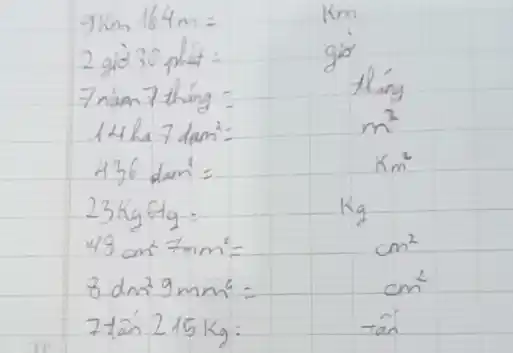 7km 164m = km
2 giờ 30 phút = giờ
7 năm 7 tháng = tháng
14 ha 7 dam² = m²
436 dam² = Km²
23 Kg 6 = Kg
49 cm² 7mm² = cm²
8 dm² 9mm² = cm²
7 tấn 215 Kg = Tấn